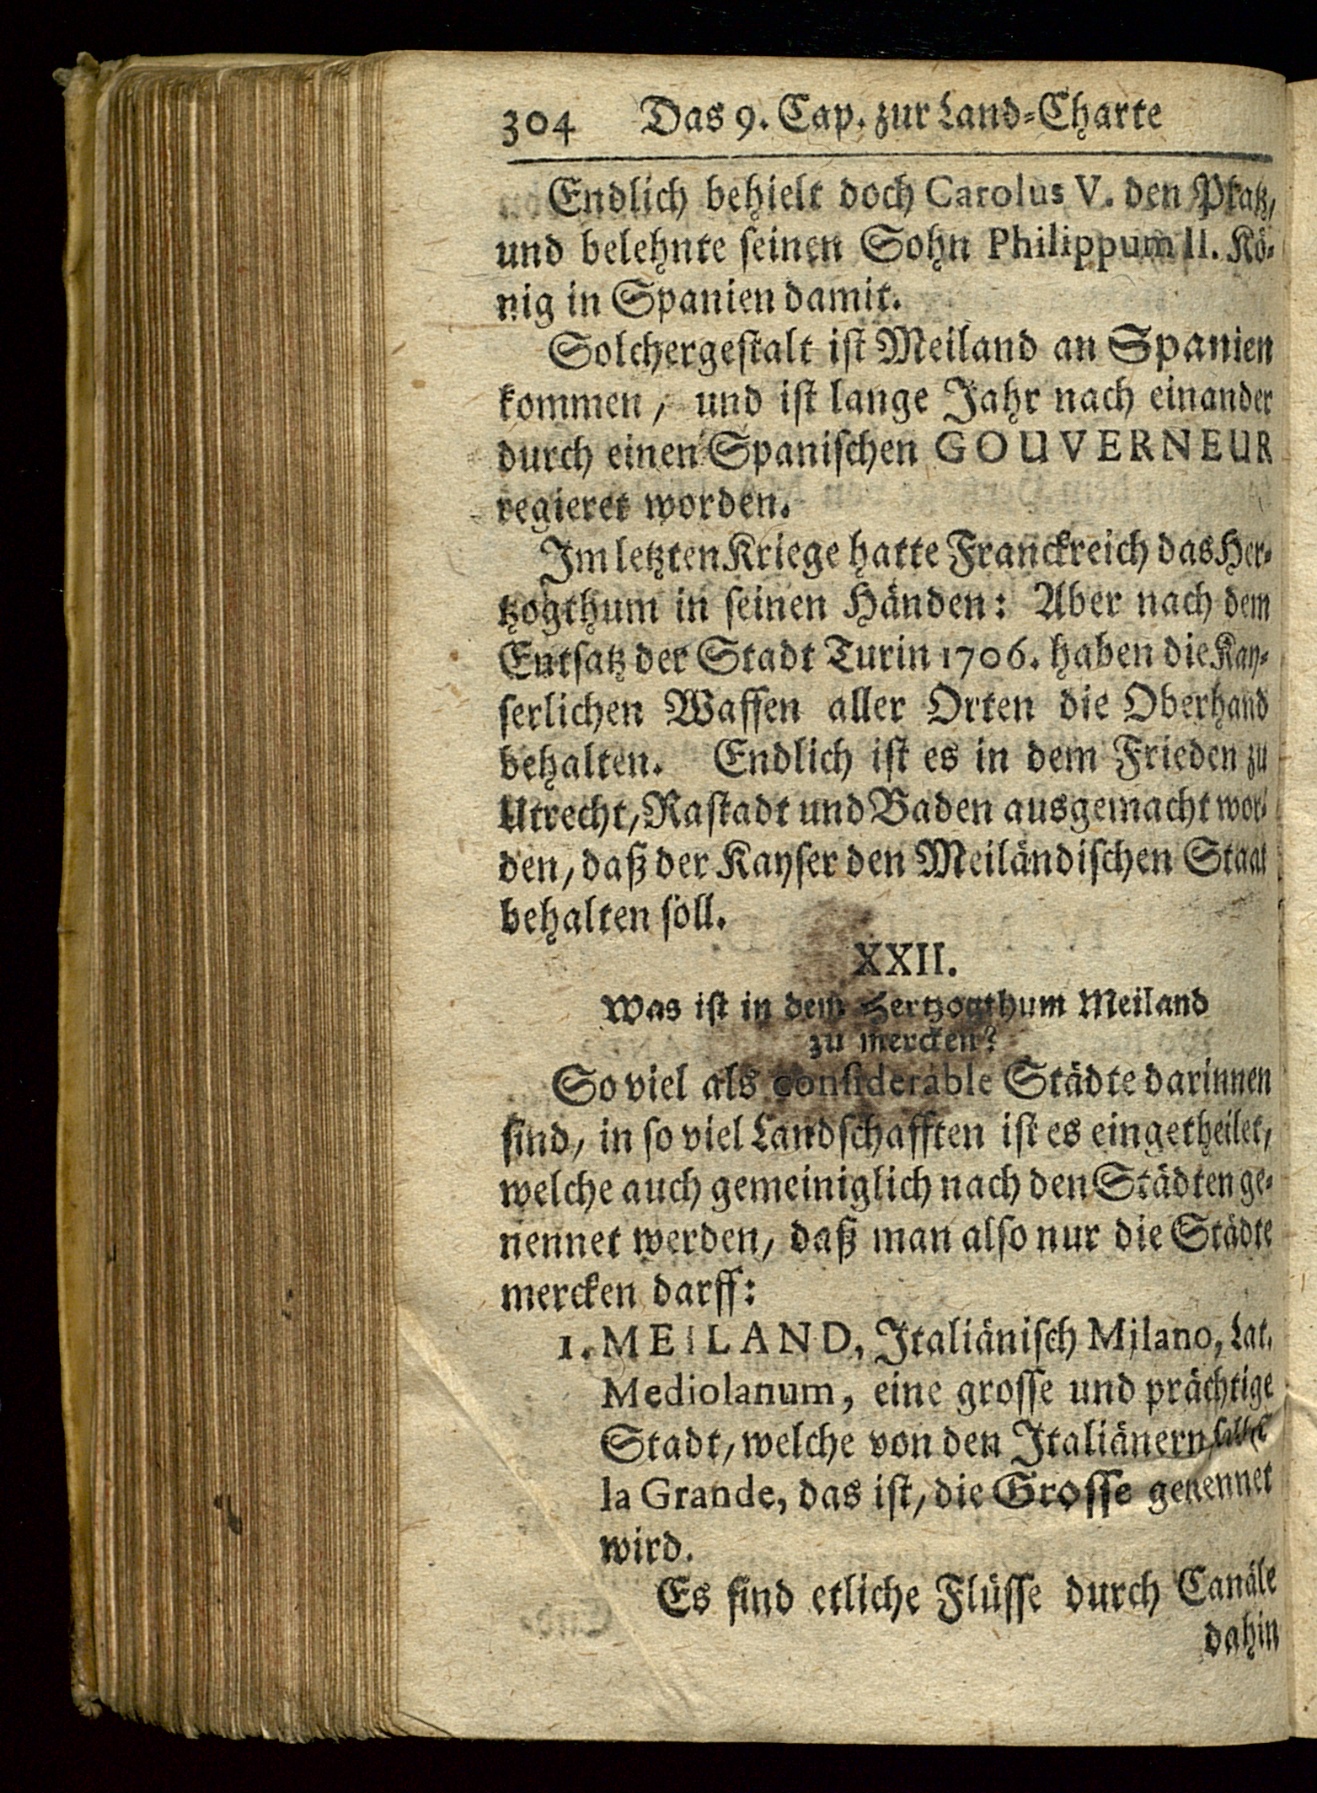 304 Das 9. Cap. zur Land-Charte
Endlich behielt doch Carolus V. den Platz,
und belehnte seinen Sohn Philippum II. Kö-
nig in Spanien damit.
Solchergestalt ist Meiland an Spanien
kommen, und ist lange Jahr nach einander
durch einen Spanischen GOUVERNEUR
regieret worden.
Im letzten Kriege hatte Franckreich das Her-
tzogthum in seinen Händen: Aber nach dem
Entsatz der Stadt Turin 1706. haben die Kay-
serlichen Waffen aller Orten die Oberhand
behalten. Endlich ist es in dem Frieden zu
Utrecht, Rastadt und Baden ausgemacht wor-
den, daß der Kayser den Meiländischen Staat
behalten soll.
XXII.
Was ist in dem Hertzogthum Meiland
zu mercken?
So viel als considerable Städte darinnen
sind, in so viel Landschafften ist es eingetheilet,
welche auch gemeiniglich nach den Städten ge-
nennet werden, daß man also nur die Städte
mercken darff:
1. MEILAND, Italiänisch Milano, Lat.
Mediolanum, eine grosse und prächtige
Stadt, welche von den Italiänern
la Grande, das ist, die Grosse genennet
wird.
Es sind etliche Flüsse durch Canäle
dahin